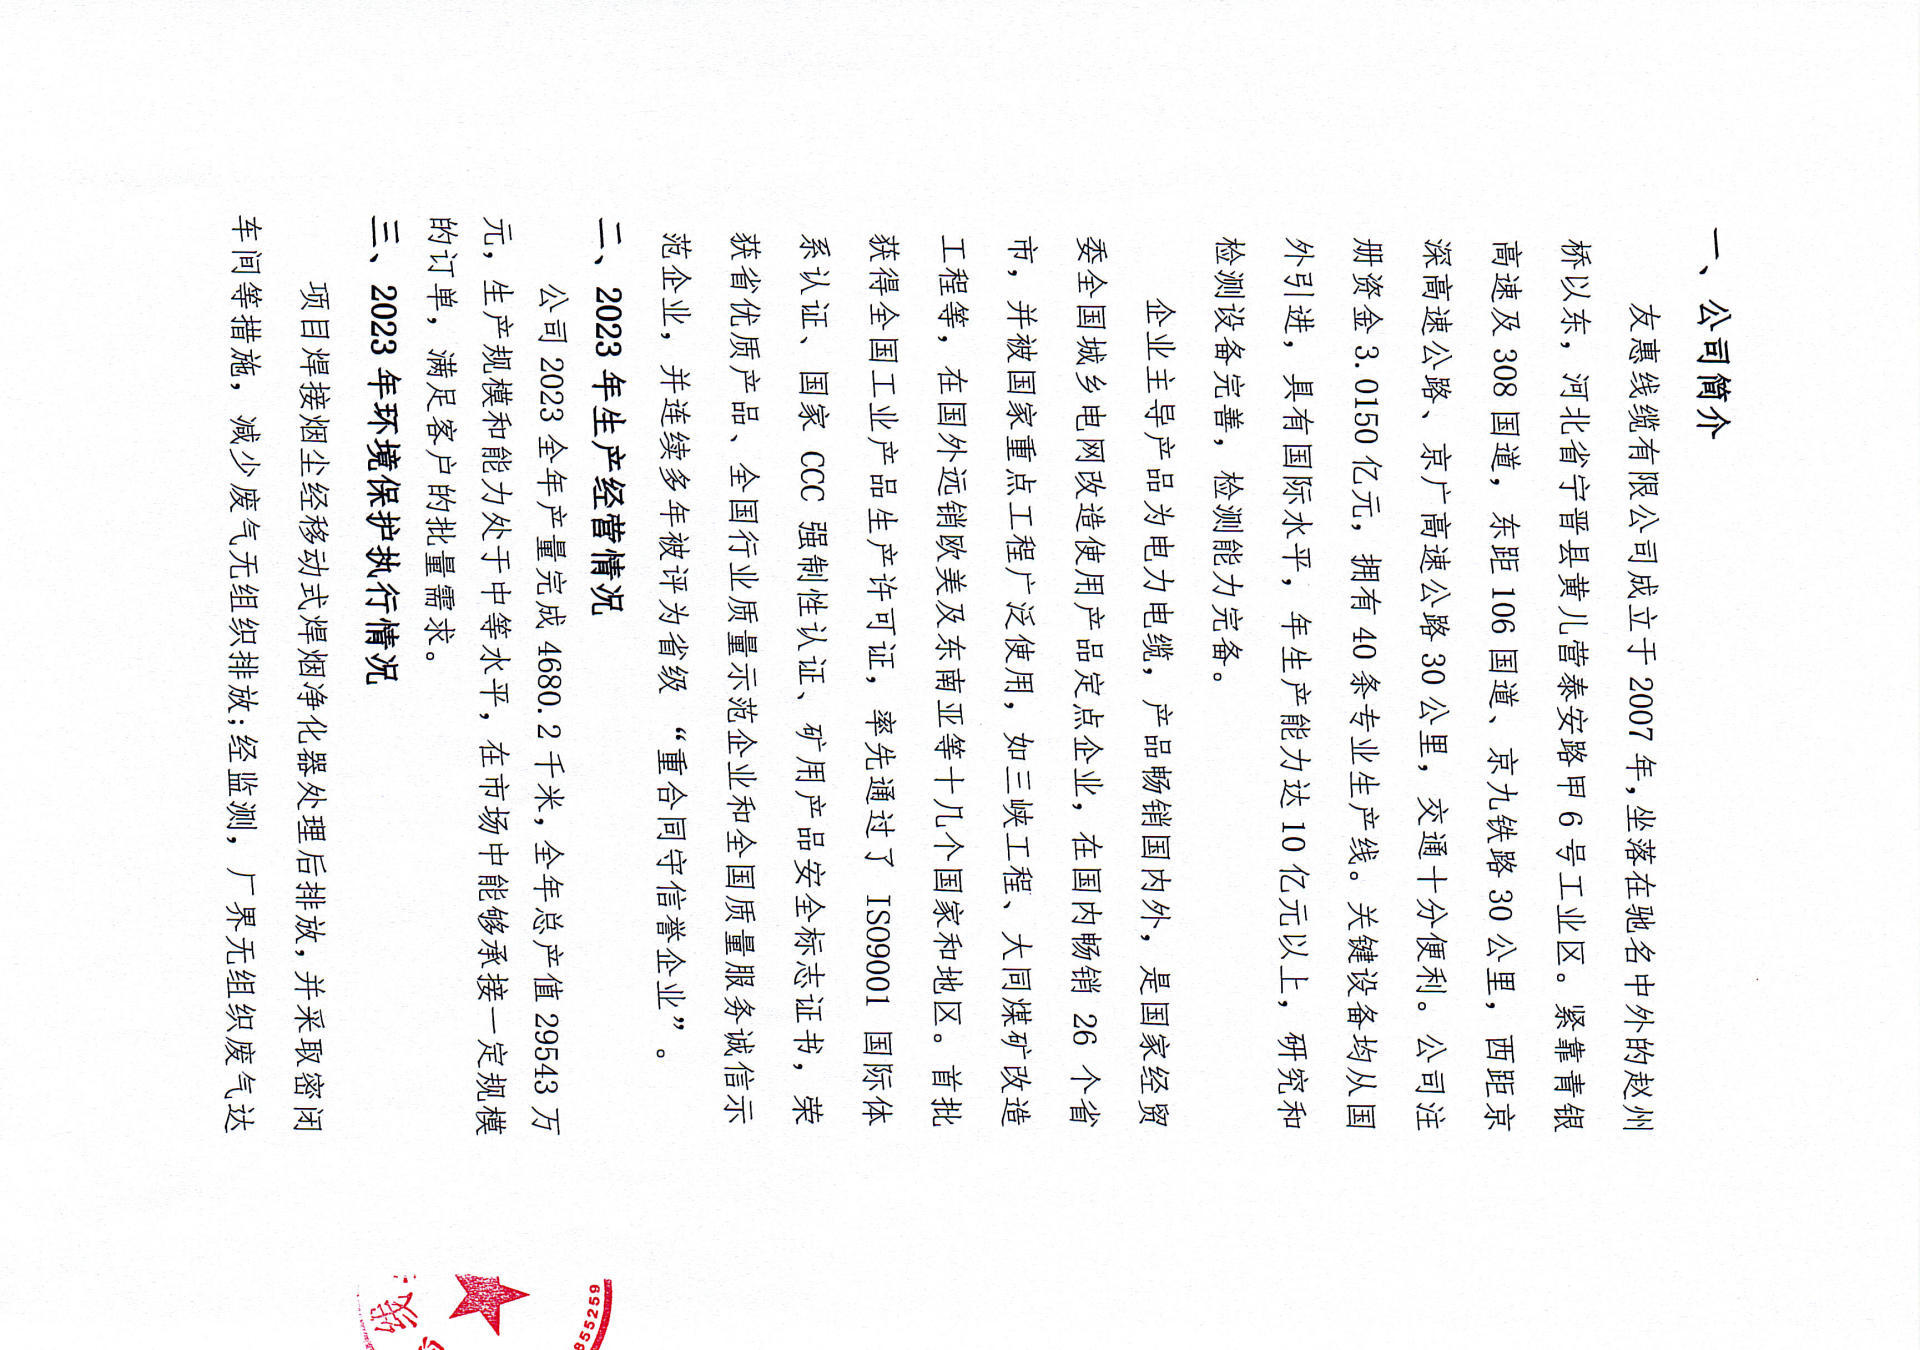 一、公司简介
友惠线缆有限公司成立于 2007 年,坐落在驰名中外的赵州
桥以东，河北省宁晋县黄儿营泰安路甲 6 号工业区。紧靠青银
高速及 308 国道，东距 106 国道、京九铁路 30 公里，西距京
深高速公路、京广高速公路 30 公里，交通十分便利。公司注
册资金 3.0150 亿元，拥有 40 条专业生产线。关键设备均从国
外引进，具有国际水平，年生产能力达 10 亿元以上，研究和
检测设备完善，检测能力完备。
企业主导产品为电力电缆，产品畅销国内外，是国家经贸
委全国城乡电网改造使用产品定点企业，在国内畅销 26 个省
市，并被国家重点工程广泛使用，如三峡工程、大同煤矿改造
工程等，在国外远销欧美及东南亚等十几个国家和地区。首批
获得全国工业产品生产许可证，率先通过了 ISO9001 国际体
系认证、国家 CCC 强制性认证、矿用产品安全标志证书，荣
获省优质产品、全国行业质量示范企业和全国质量服务诚信示
范企业，并连续多年被评为省级 “重合同守信誉企业”。
二、2023 年生产经营情况
公司 2023 全年产量完成 4680.2 千米，全年总产值 29543 万
元，生产规模和能力处于中等水平，在市场中能够承接一定规模
的订单，满足客户的批量需求。
三、2023 年环境保护执行情况
项目焊接烟尘经移动式焊烟净化器处理后排放，并采取密闭
车间等措施，减少废气无组织排放；经监测，厂界无组织废气达
线
855259